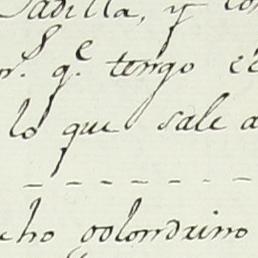 Padilla, y con
q.e tengo
lo que sale a
cho golondrino